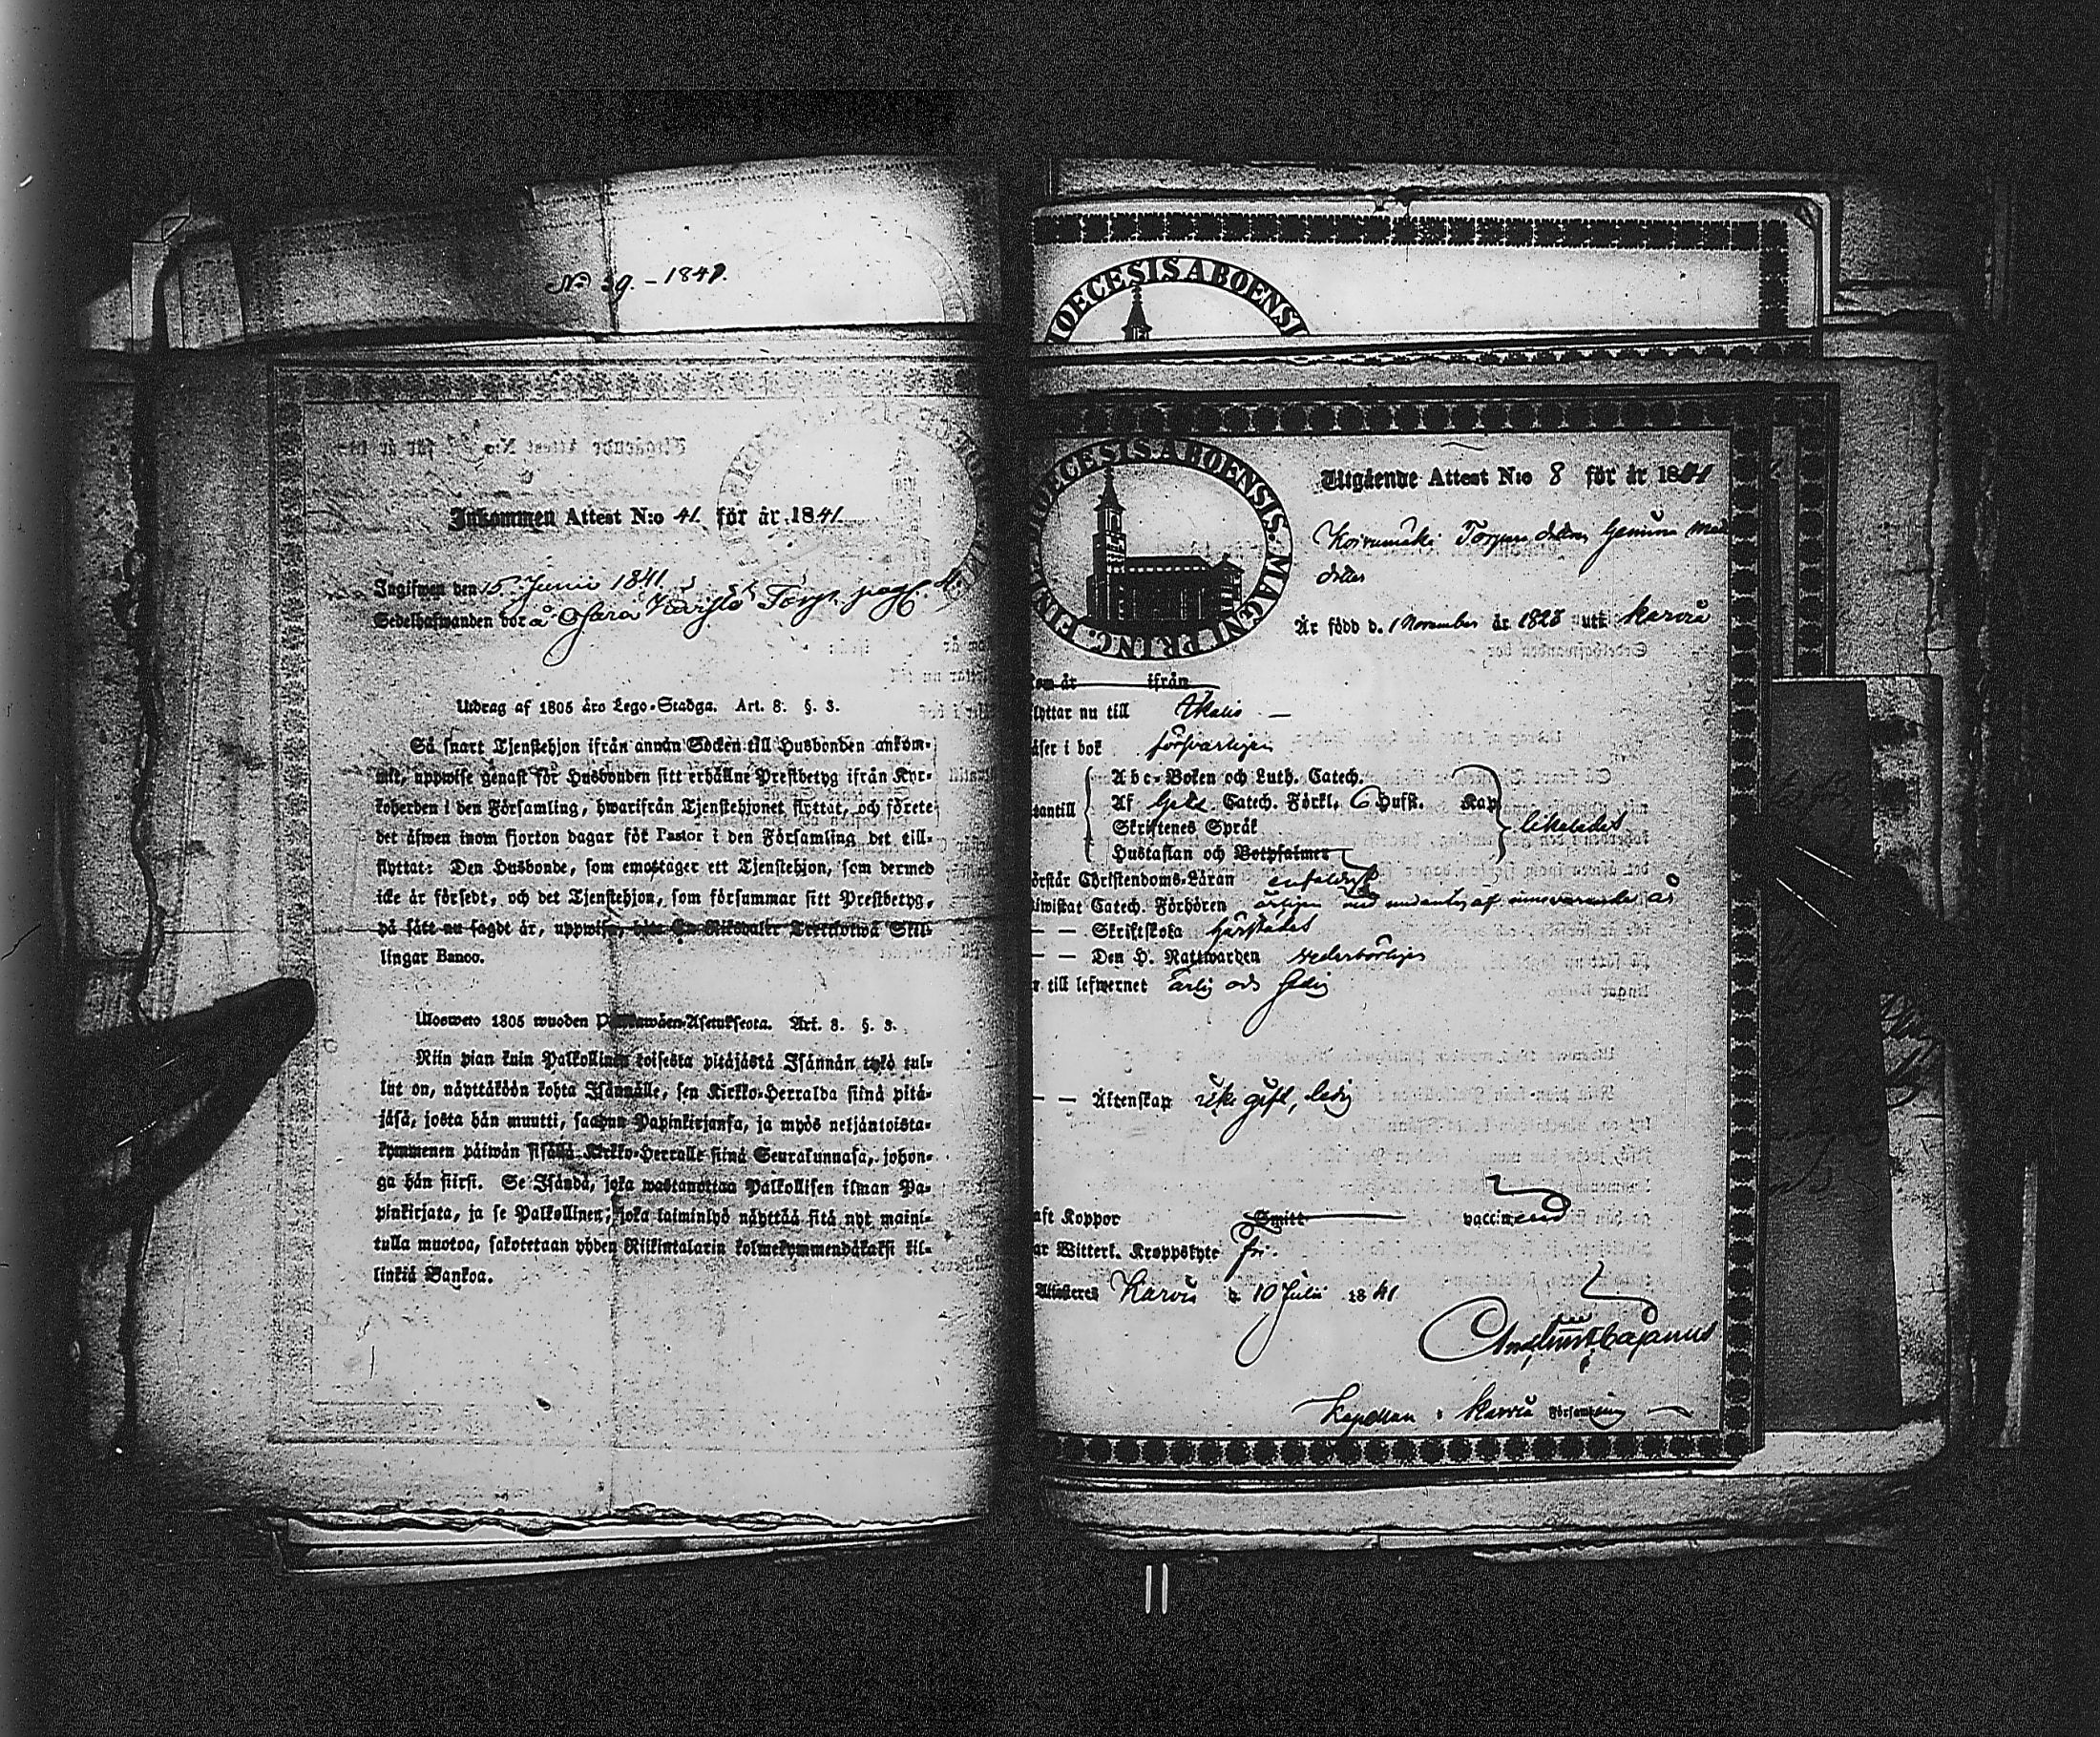 No 39. - 1841.
Inkommen Attest N:o 41. för år 1841.
Ingifwen den 15 Junii 1841.
Sedelhafwanden bor å Torp.
Utdrag af 1805 års Lego-Stadga. Art. 8. §. 3.
Så snart Tjenstehjon ifrån annan Socken till Husbonden ankom-
mit, uppwise genast för Husbonden sitt erhållne Prestbetyg ifrån Kyr-
koherden i den Församling, hwarifrån Tjenstehjonet flyttat, och förete
det äfwen inom fjorton dagar för Pastor i den Församling det till-
flyttat: Den Husbonde, som emottager ett Tjenstehjon, som dermed
icke är försedt, och det Tjenstehjon, som försummar sitt Prestbetyg,
på sätt nu sagdt är, uppwisa, böte En Riksdaler Trettiotwå Skil-
lingar Banco.
Ulosweto 1805 wuoden Palkawäen-Asetuksesta. Art. 8. §. 3.
Niin pian kuin Palkollinen toisesta pitäjästä Isännän tykö tul-
lut on, näyttäköön kohta Isännälle, sen Kirkko-Herralda siinä pitä-
jäsä, josta hän muutti, saadun Papinkirjansa, ja myös neljäntoista-
kymmenen päiwän sisällä Kirkko-Herralle siinä Seurakunnasa, johon-
ga hän siirsi. Se Isändä, joka wastanottaa Palkollisen ilman Pa-
pinkirjata, ja se Palkollinen, joka laiminlyö näyttää sitä nyt maini-
tulla muotoa, sakotetaan yhden Riikintalarin kolmekymmendäkaksi kil-
linkiä Bankoa.
DIOECESIS ABOENSI
DIOECESIS ABOENSIS MAGNI PRINC. FIN
Utgående Attest N:o 8 för år 1841
Koivumäki Torpare
Är född d. 1 November år 1823 uti Karvia
om år ifrån
lyttar nu till Ikalis —
äser i bok försvarligen
Abc-Boken och Luth. Catech.
antill Af Catech. Förkl. Hufst. Kap
Skriftenes Språk likaledes
Hustaflan och Botpsalmer
örstår Christendoms-Läran enfaldigt
iwistat Catech. Förhören årligen med undantag af innevarande år
— — Skriftskola
— — Den H. Nattwarden vederbörligen
r till lefwernet ärlig och
— — Äktenskap icke gift, ledig
aft Koppor Smitt vaccinerad
ar Witterl. Kroppslyte fri.
Attesteres Karvia d. 10 Julii 1841
Cajanus
Kapellan i Karvia Församling